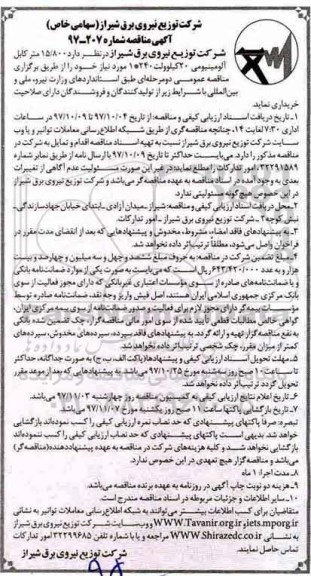 شرکت توزیع نیروی برق شیراز (سهامی خاص)
آگهی مناقصه شماره ۲۰۷-۹۷
شرکت توزیع نیروی برق شیراز در نظر دارد ۱۵/۸۰۰ متر کابل
آلومینیومی ۲۰کیلوولت ۲۴۰*۱ مورد نیاز خود را از طریق برگزاری
مناقصه عمومی دومرحله‌ای طبق استانداردهای وزارت نیرو، ملی و
بین‌المللی با شرایط زیر از تولیدکنندگان و فروشندگان دارای صلاحیت
خریداری نماید.
۱- تاریخ دریافت اسناد ارزیابی کیفی و مناقصه: از تاریخ ۹۷/۱۰/۰۴ تا ۹۷/۱۰/۰۹ در ساعات
اداری ۷:۳۰ لغایت ۱۴، چنانچه مناقصه‌گری از طریق شبکه اطلاع‌رسانی معاملات توانیر و یا وب
سایت شرکت توزیع نیروی برق شیراز نسبت به تهیه اسناد مناقصه اقدام و تمایل به شرکت در
مناقصه مذکور را دارد، می‌بایست حداکثر تا تاریخ ۹۷/۱۰/۰۹ با ارسال نامه از طریق نمابر شماره
۳۲۲۹۱۵۸۹، امور تدارکات را مطلع نمایند؛ در غیر این صورت مسئولیت عدم آگاهی از تغییرات
بعدی به وجود آمده در اسناد مناقصه به عهده مناقصه‌گر می‌باشد و شرکت توزیع برق شیراز
در این خصوص هیچ‌گونه مسئولیتی ندارد.
۲- محل دریافت اسناد ارزیابی کیفی و مناقصه: شیراز- میدان آزادی- ابتدای خیابان جهادسازندگی-
نبش کوچه ۲- شرکت توزیع نیروی برق شیراز- امور تدارکات.
۳- به پیشنهادهای فاقد امضاء، مشروط، مخدوش و پیشنهادهایی که بعد از انقضای مدت مقرر در
فراخوان واصل می‌شود، مطلقاً ترتیب‌اثر داده نخواهد شد.
۴- مبلغ تضمین شرکت در مناقصه: به حروف مبلغ ششصد و چهل و سه میلیون و چهارصد و بیست
هزار و به عدد ۶۴۳/۴۲۰/۰۰۰ ریال است که می‌بایست به صورت یکی از موارد ضمانت‌نامه بانکی
و یا ضمانت‌نامه‌های صادره از سوی مؤسسات اعتباری غیربانکی که دارای مجوز فعالیت از سوی
بانک مرکزی جمهوری اسلامی ایران هستند، اصل فیش واریز وجه نقد، ضمانت‌نامه صادره توسط
مؤسسات بیمه‌گر دارای مجوز لازم برای فعالیت و صدور ضمانت‌نامه از سوی بیمه مرکزی ایران،
گواهی خالص مطالبات قطعی تأیید شده از سوی امور مالی مناقصه‌گزار، چک تضمین شده بانکی
به نفع مناقصه‌گزار تهیه و ارائه گردد. به پیشنهادهای فاقد سپرده، سپرده‌های مخدوش، سپرده‌های
کمتر از میزان مقرر، چک شخصی ترتیب‌اثر داده نخواهد شد.
۵- مهلت تحویل اسناد ارزیابی کیفی و پیشنهادها (پاکت الف، ب، ج) به صورت جداگانه، حداکثر
تا ساعت ۱۰ صبح روز سه‌شنبه مورخ ۹۷/۱۰/۲۵ می‌باشد. به پیشنهادهایی که بعد از موعد مقرر
تحویل گردد ترتیب‌اثر داده نخواهد شد.
۶- تاریخ اعلام نتایج ارزیابی کیفی به کمیسیون مناقصه روز چهارشنبه ۹۷/۱۱/۰۳ می‌باشد.
۷- تاریخ بازگشایی پاکتها ساعت ۱۱ صبح روز یکشنبه مورخ ۹۷/۱۱/۰۷ می‌باشد.
تبصره: صرفاً پاکتهای پیشنهادی که حد نصاب نمره ارزیابی کیفی را کسب نموده‌اند بازگشایی
خواهد شد. بدیهی است پاکتهای پیشنهادی که حد نصاب ارزیابی کیفی را کسب ننموده‌اند
بازگشایی نخواهد شد و کلیه هزینه‌های شرکت در مناقصه به عهده پیشنهاددهنده (مناقصه‌گر)
می‌باشد و مناقصه‌گزار هیچ تعهدی در این خصوص ندارد.
۸- مدت اجرا: ۱ ماه
۹- هزینه دو نوبت چاپ آگهی در روزنامه به عهده برنده مناقصه می‌باشد.
۱۰- سایر اطلاعات و جزئیات مربوطه در اسناد مناقصه مندرج است.
متقاضیان برای کسب اطلاعات بیشتر می‌توانند به شبکه اطلاع‌رسانی معاملات توانیر به نشانی
WWW.Tavanir.org.ir و iets.mporg.ir وب‌سایت شرکت توزیع نیروی برق شیراز
به نشانی WWW.Shirazedc.co.ir مراجعه و یا با شماره تلفن ۳۲۲۹۹۶۸۵ امور تدارکات
تماس حاصل نمایند.
شرکت توزیع نیروی برق شیراز